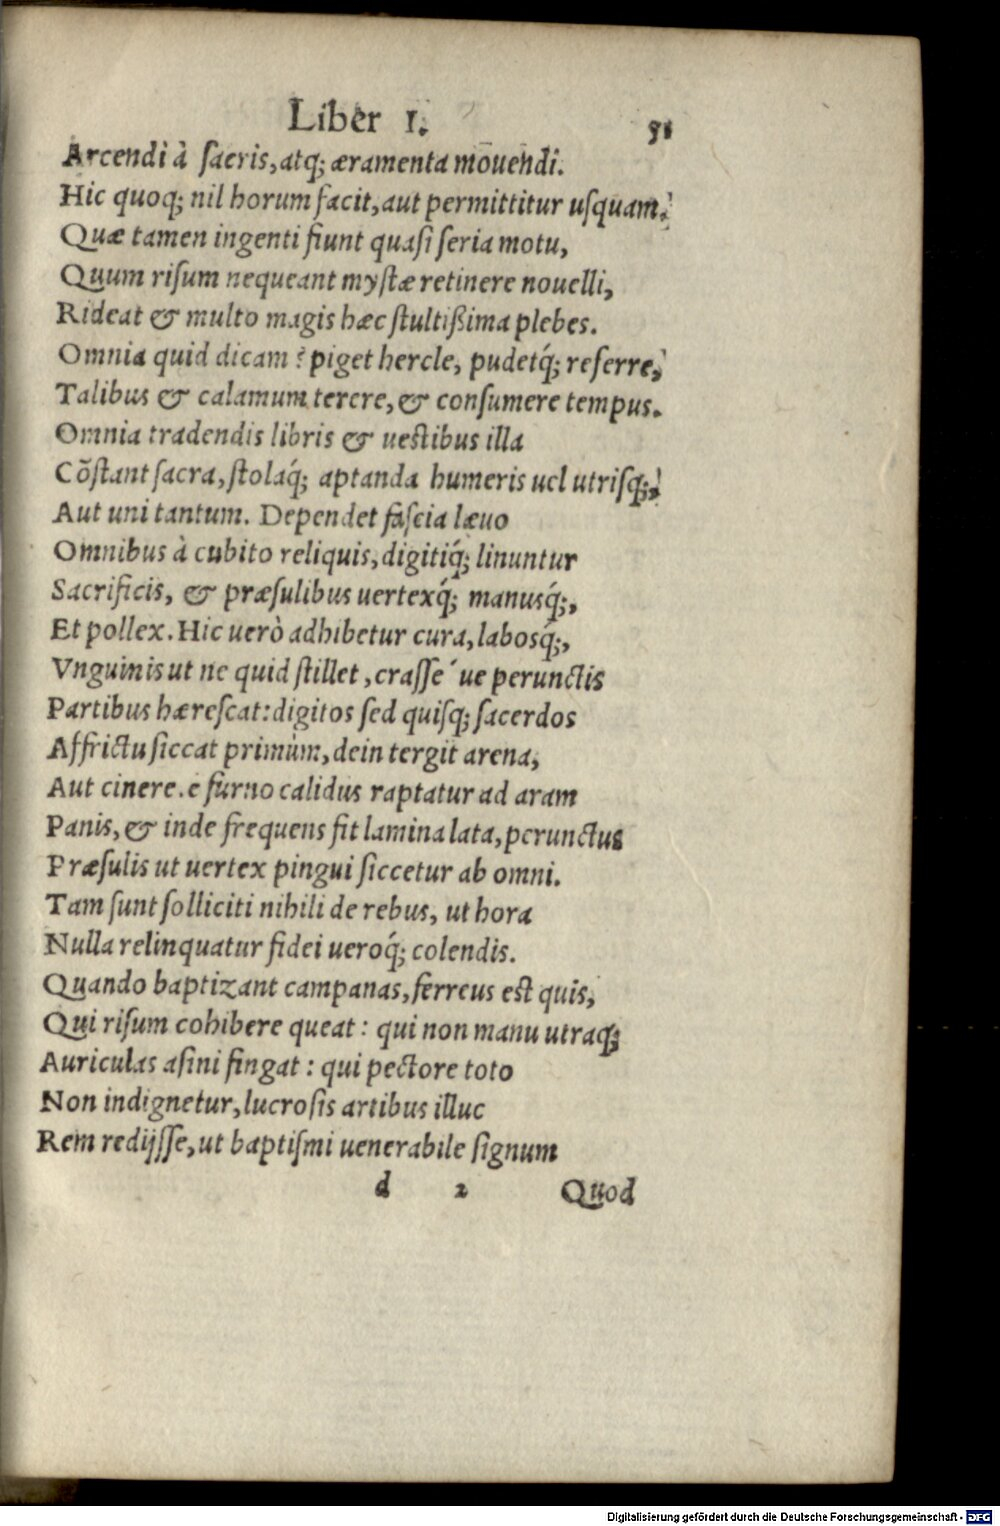 Liber 1. 51
Arcendi à sacris, atq; æramenta mouendi.
Hic quoq; nil horum facit, aut permittitur usquam.
Quæ tamen ingenti fiunt quasi seria motu,
Quum risum nequeant mystæ retinere nouelli,
Rideat & multo magis hæc stultißima plebes.
Omnia quid dicam? piget hercle, pudetq́; referre,
Talibus & calamum terere, & consumere tempus.
Omnia tradendis libris & uestibus illa
Cõstant sacra, stolaq́; aptanda humeris uel utrisq;,
Aut uni tantum. Dependet fascia læuo
Omnibus à cubito reliquis, digitiq́; linuntur
Sacrificis, & præsulibus uertexq́; manusq́;,
Et pollex. Hic uerò adhibetur cura, labosq́;,
Vnguinis ut ne quid stillet, crasse´ue perunctis
Partibus hærescat: digitos sed quisq; sacerdos
Affrictu siccat primùm, dein tergit arena,
Aut cinere. e furno calidus raptatur ad aram
Panis, & inde frequens fit lamina lata, perunctus
Præsulis ut uertex pingui siccetur ab omni.
Tam sunt solliciti nihili de rebus, ut hora
Nulla relinquatur fidei ueroq́; colendis.
Quando baptizant campanas, ferreus est quis,
Qui risum cohibere queat: qui non manu utraq;
Auriculas asini fingat: qui pectore toto
Non indignetur, lucrosis artibus illuc
Rem redijsse, ut baptismi uenerabile signum
d 2 Quod
Digitalisierung gefördert durch die Deutsche Forschungsgemeinschaft - DFG